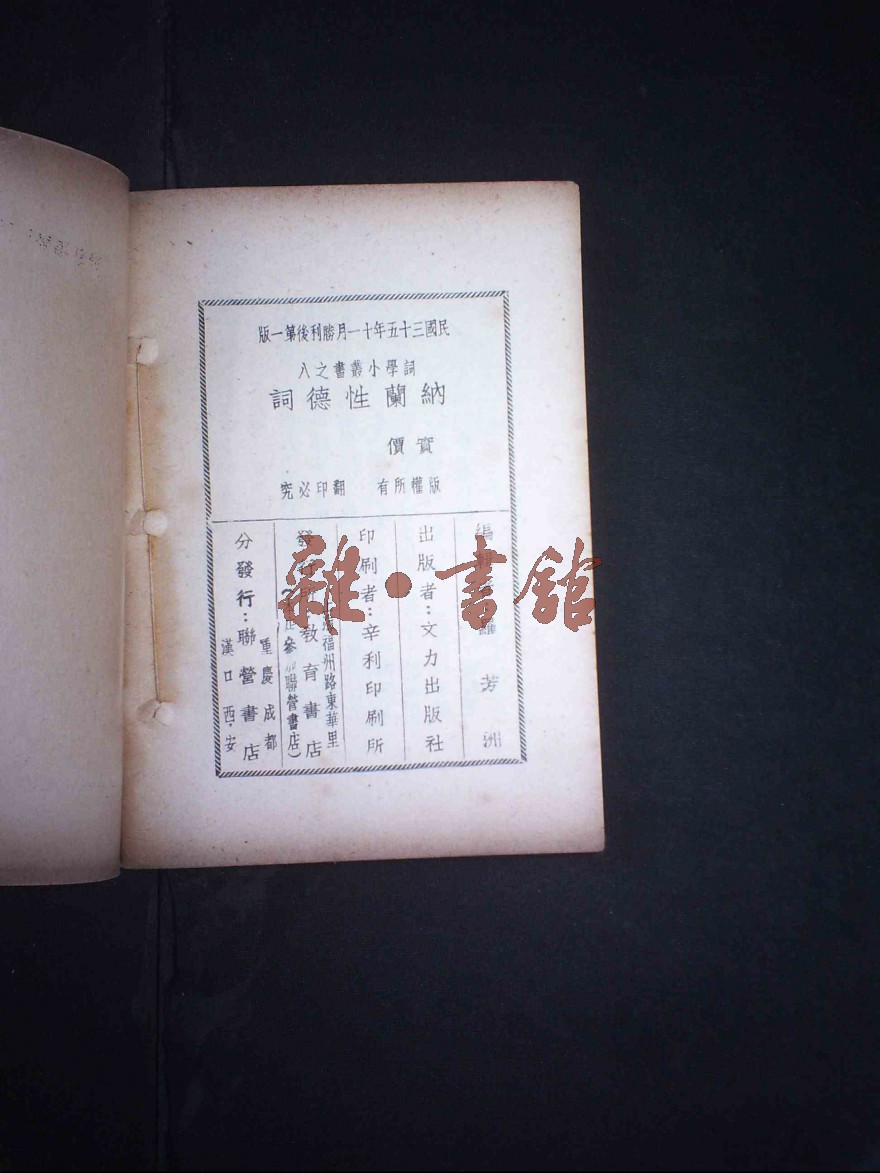 民國三十五年十一月勝利後第一版
詞學小叢書之八
納蘭性德詞
實價
版權所有 翻印必究
編輯 羅芳洲
出版者：文力出版社
印刷者：辛利印刷所
福州路東華里
發行所教育書店
參加聯營書店）
重慶 成都
分發行：聯營書店
漢口 西安
雜·書館